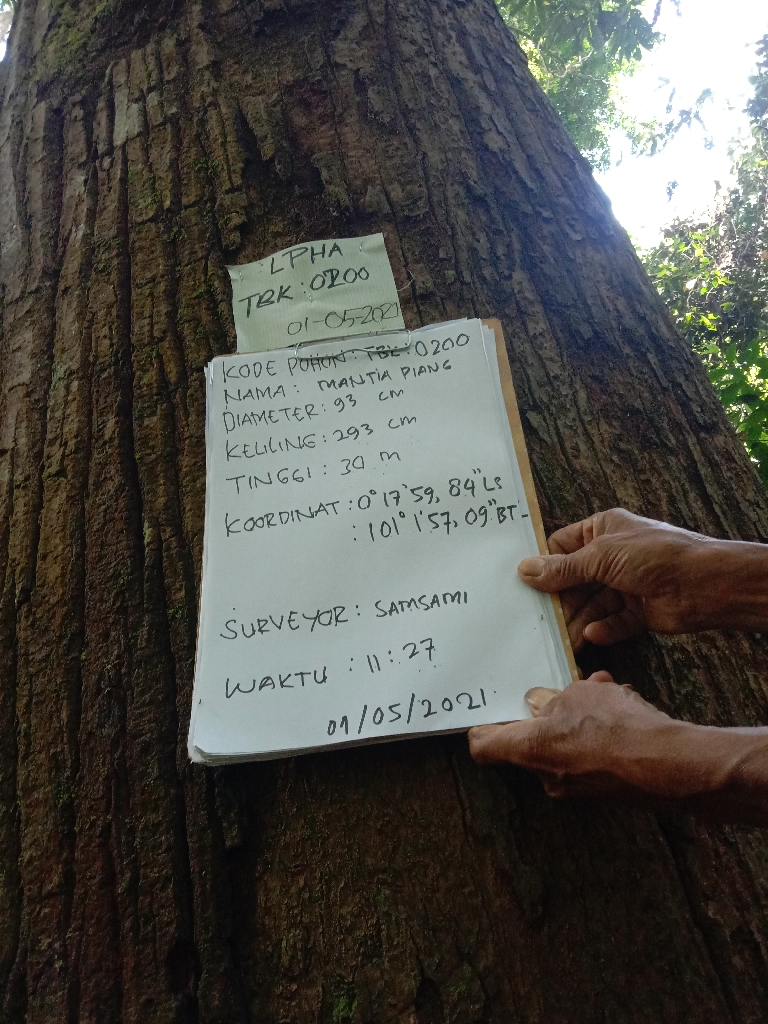 LPHA
TBK : 0200
01-05-2021
KODE POHON : TBK : 0200
NAMA : MANTIA PIANG
DIAMETER : 93 cm
KELILING : 293 cm
TINGGI : 30 m
KOORDINAT : 0° 17' 59, 84" LS
: 101° 1' 57, 09" BT
SURVEYOR : SAMSAMI
WAKTU : 11 : 27
01/05/2021